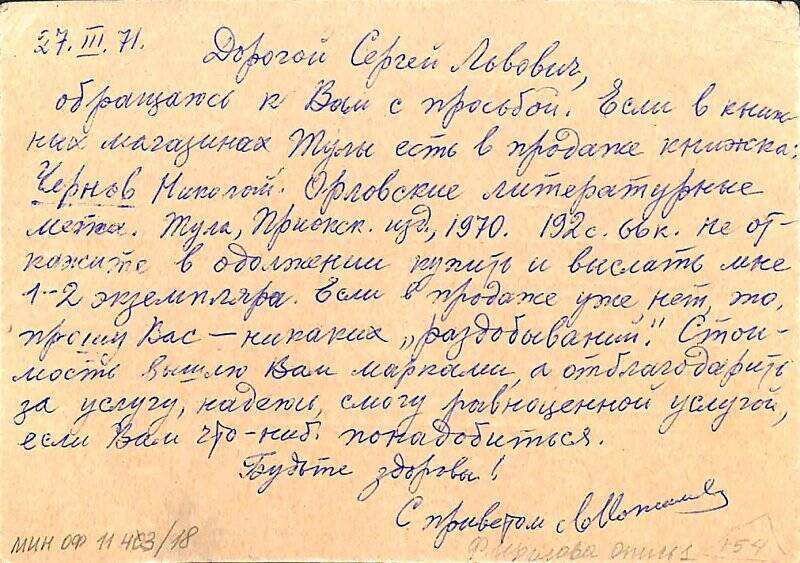 27.III.71.
Дорогой Сергей Львович,
обращаюсь к Вам с просьбой. Если в книж-
ных магазинах Тулы есть в продаже книжка:
Чернов Николай. Орловские литературные
места. Тула, Приокск. изд., 1970. 192 с. 66 к. не от-
кажите в одолжении купить и выслать мне
1-2 экземпляра. Если в продаже уже нет, то,
прошу Вас — никаких „раздобываний“! Стои-
мость вышлю Вам марками, а отблагодарить
за услугу, надеюсь, смогу равноценной услугой,
если Вам что-ниб. понадобиться.
Будьте здоровы!
С приветом
МИН ОФ 11403/18
опись 154